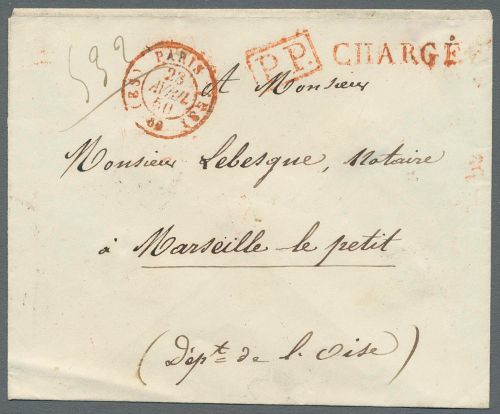 532
PARIS
(ES) (ES)
23
AVRIL
50
60
P.P.
CHARGÉ
A Monsieur
Monsieur Lebesgue, Notaire
à Marseille-le petit
(Dépt de l'Oise)